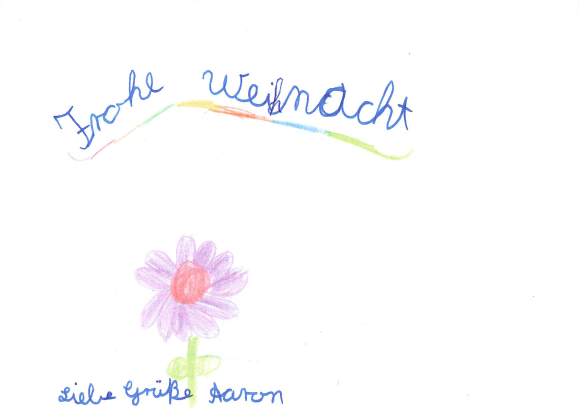 Frohe Weihnacht
Liebe Grüße Aaron